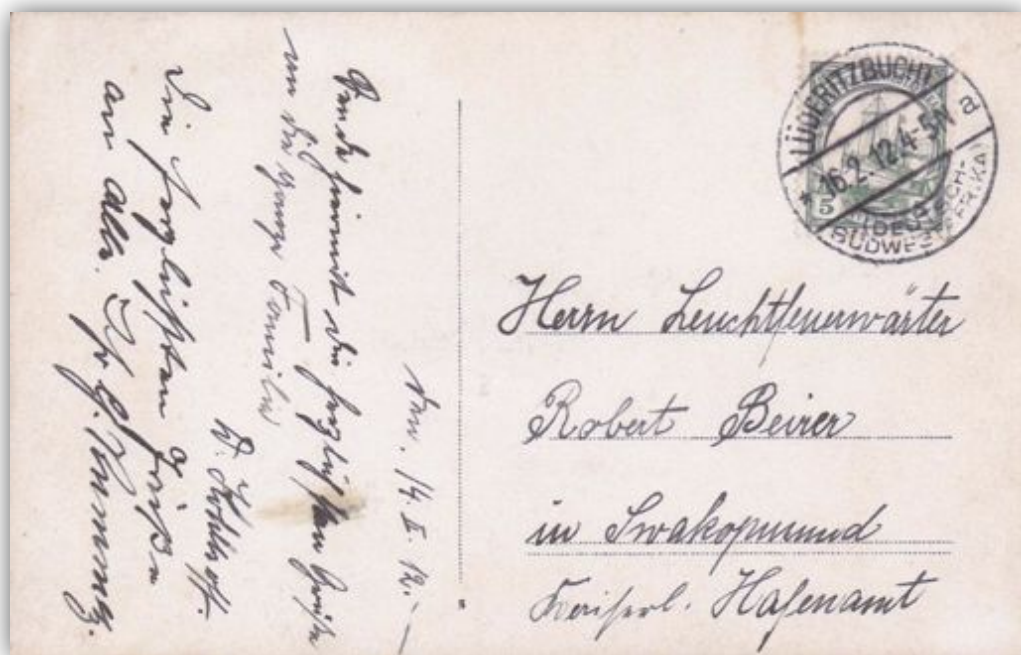 LÜDERITZBUCHT
a
* 16.2.12.4-5N
(DEUTSCH-
SÜDWESTAFRIKA)
5
Herrn Leuchtfeuerwärter
Robert Beirer
in Swakopmund
Kaiserl. Hafenamt
14. II. 12.
Sende hiermit die herzlichsten Grüße
an die ganze Familie
Die herzlichsten Grüße
an alle.